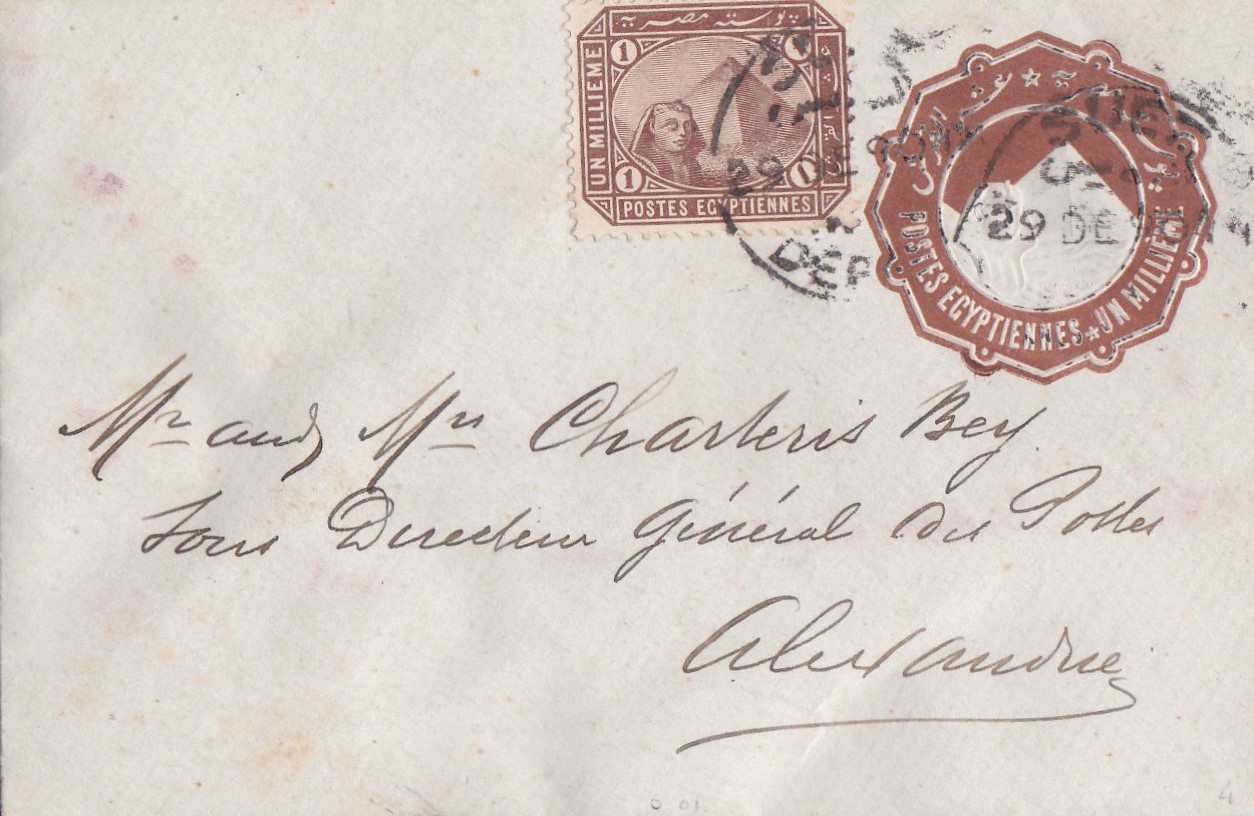 بوسته مصريه
UN MILLIEME
1
1
1
POSTES EGYPTIENNES
29 DE
DEP
SUE
29 DE
POSTES EGYPTIENNES ★ UN MILLIÈME
Mr and Mrs Charteris Bey
Sous Directeur Général des Postes
Alexandrie
4